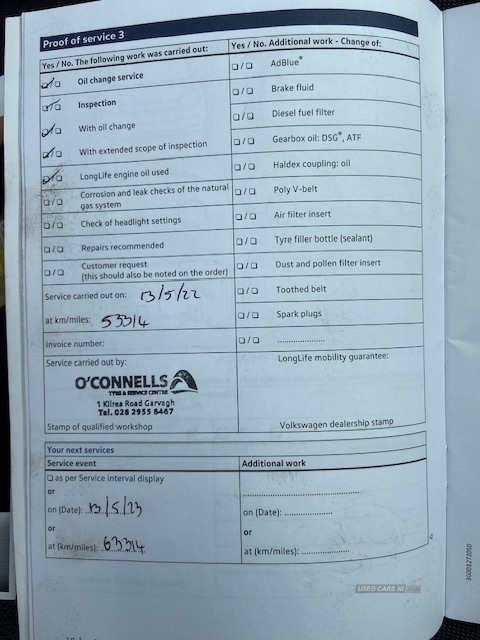 Proof of service 3
Yes / No. The following work was carried out:
Oil change service
Inspection
With oil change
With extended scope of inspection
LongLife engine oil used
Corrosion and leak checks of the natural
gas system
Check of headlight settings
Repairs recommended
Customer request
(this should also be noted on the order)
Service carried out on: 13/5/22
at km/miles: 53314
Invoice number:
Service carried out by:
O'CONNELLS
TYRE & SERVICE CENTRE
1 Kilrea Road Garvagh
Tel. 028 2955 8467
Stamp of qualified workshop
Yes / No. Additional work - Change of:
AdBlue®
Brake fluid
Diesel fuel filter
Gearbox oil: DSG®, ATF
Haldex coupling: oil
Poly V-belt
Air filter insert
Tyre filler bottle (sealant)
Dust and pollen filter insert
Toothed belt
Spark plugs
LongLife mobility guarantee:
Volkswagen dealership stamp
Your next services
Service event
as per Service interval display
or
on (Date): 13/5/23
or
at (km/miles): 63314
Additional work
on (Date):
or
at (km/miles):
USED CARS NI